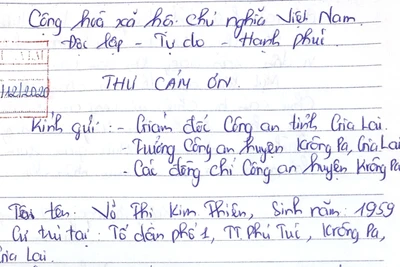 Cộng hoà xã hội chủ nghĩa Việt Nam.
Độc lập - Tự do - Hạnh phúc
12/2020
THƯ CẢM ƠN.
Kính gửi: - Giám đốc Công an tỉnh Gia Lai.
- Trưởng Công an huyện Krông Pa, Gia Lai
- Các đồng chí Công an huyện Krông Pa,
Tôi tên: Võ Thi Kim Thiên, Sinh năm: 1959
Cư trú tại: Tổ dân phố 1, TT Phú Túc, Krông Pa,
Gia Lai.